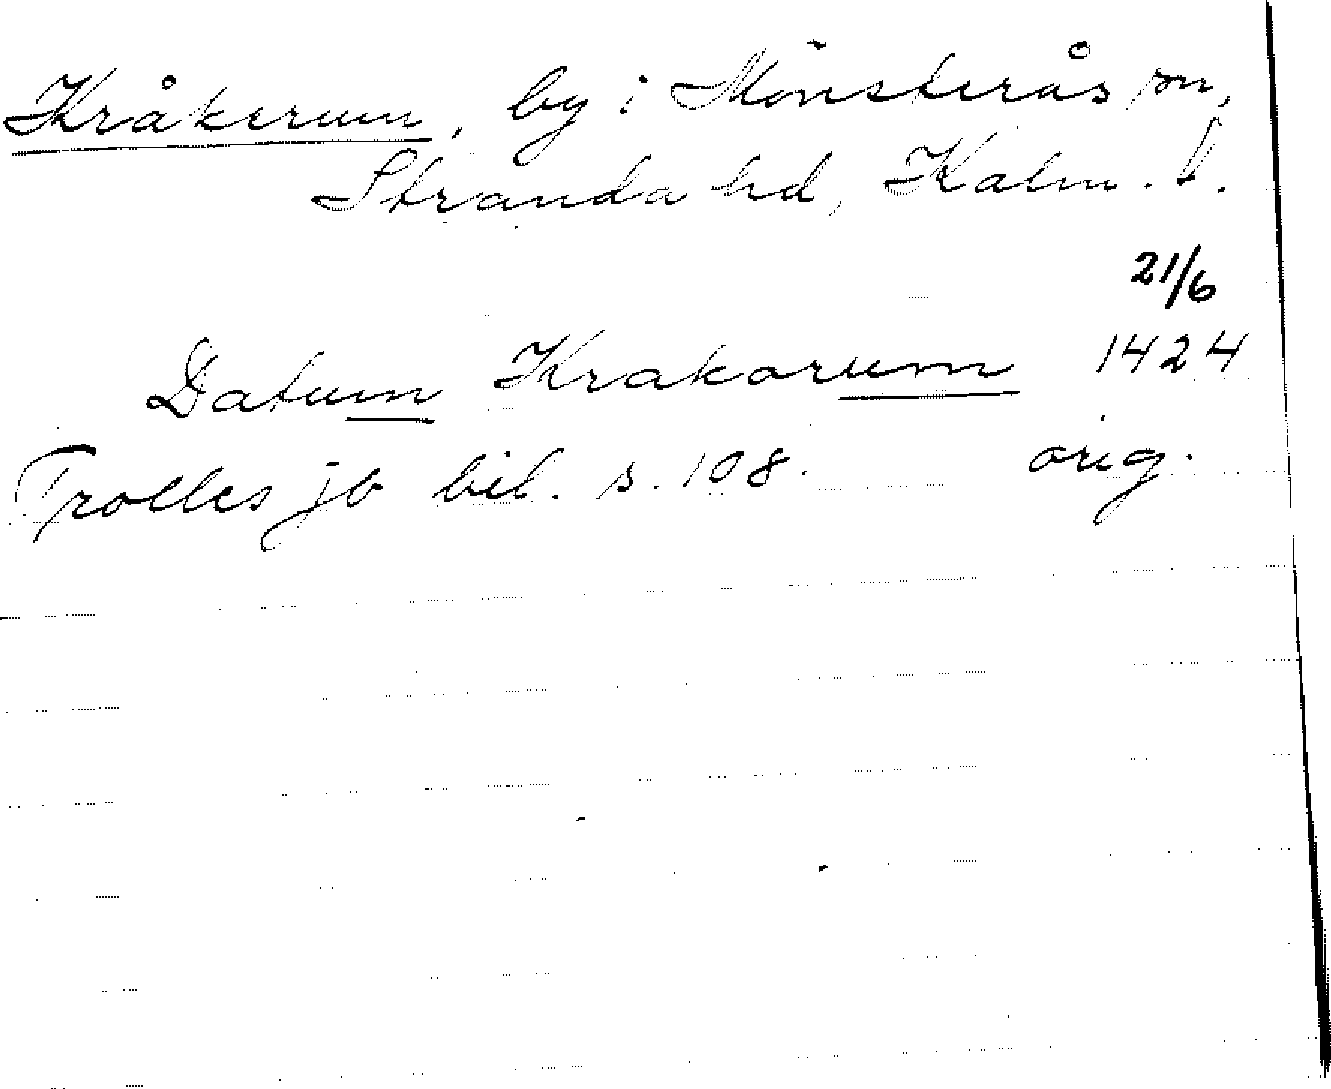 Kråkerum, by i Mönsterås sn,
Stranda hd, Kalm. l.
21/6
Datum Krakarum 1424
Trolles jb bil. s. 108. orig.